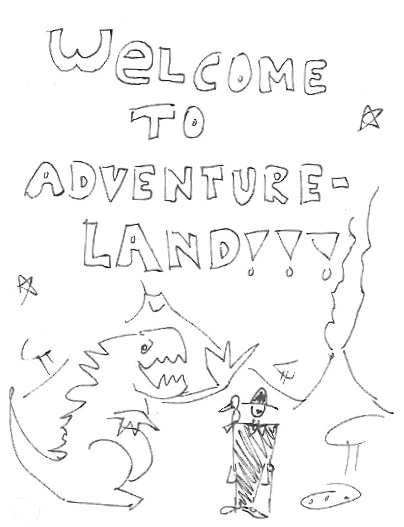 WeLCOME
TO
ADVENTURE-
LAND!!!